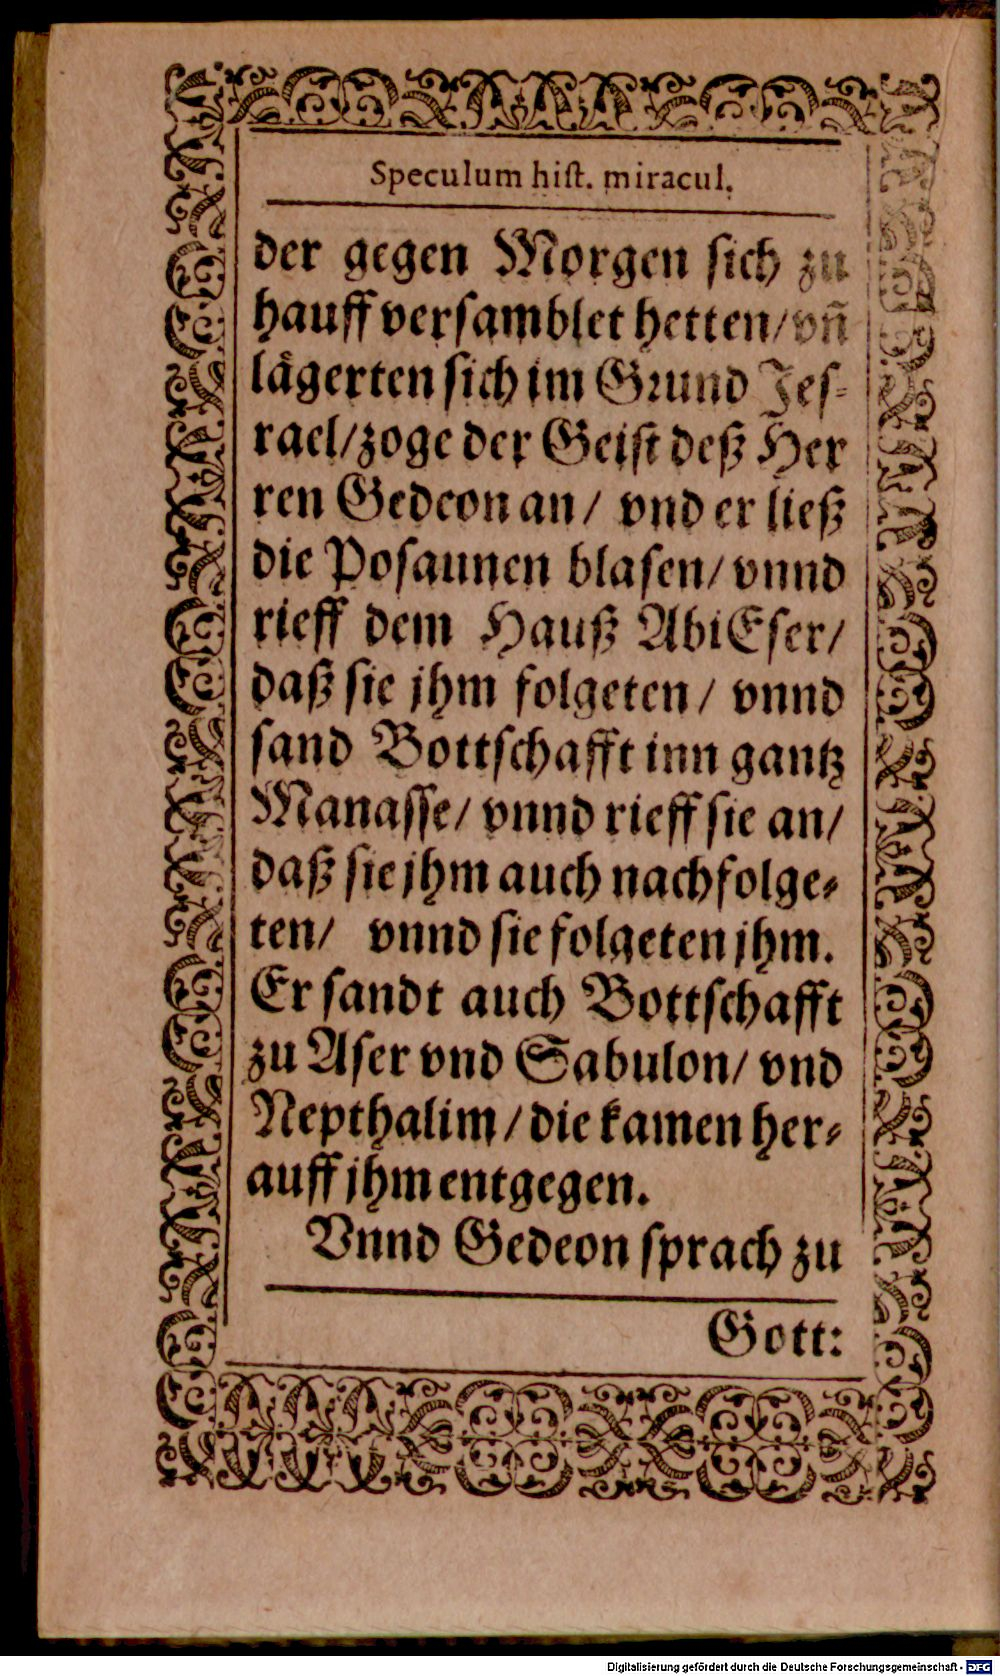 Speculum hiſt. miracul.
der gegen Morgen ſich zu
hauff verſamblet hetten/ vñ
lågerten ſich im Grund Jeſ-
rael/ zoge der Geiſt deß Her
ren Gedeon an/ vnd er ließ
die Poſaunen blaſen/ vnnd
rieff dem Hauß AbiEſer/
daß ſie jhm folgeten/ vnnd
ſand Bottſchafft inn gantz
Manaſſe/ vnnd rieff ſie an/
daß ſie jhm auch nachfolge-
ten/ vnnd ſie folgeten jhm.
Er ſandt auch Bottſchafft
zu Aſer vnd Sabulon/ vnd
Nepthalim/ die kamen her-
auff jhm entgegen.
Vnnd Gedeon ſprach zu
Gott:
Digitalisierung gefördert durch die Deutsche Forschungsgemeinschaft - DFG